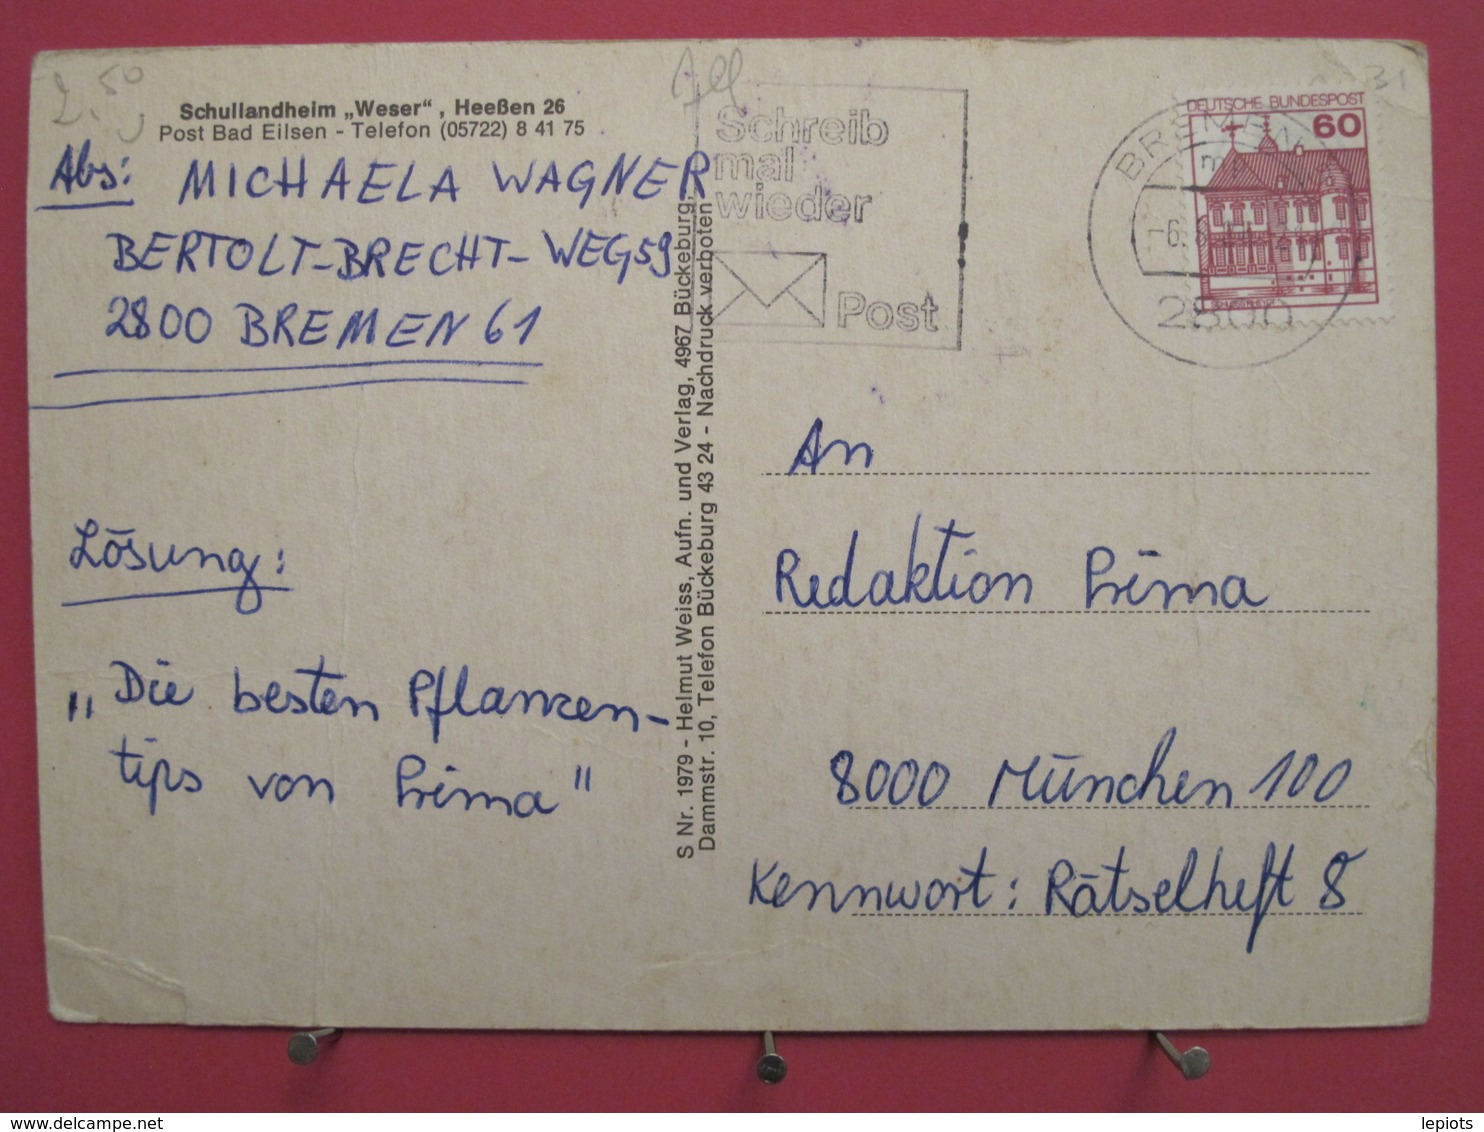 2.50
Schullandheim „Weser“, Heeßen 26
Post Bad Eilsen - Telefon (05722) 8 41 75
Abs: MICHAELA WAGNER
BERTOLT-BRECHT-WEG 59
2800 BREMEN 61
Lösung:
„Die besten Pflanzen-
tips von Prima"
S Nr. 1979 - Helmut Weiss, Aufn. und Verlag, 4967 Bückeburg,
Dammstr. 10, Telefon Bückeburg 43 24 - Nachdruck verboten
Schreib
mal
wieder
Post
BREMEN
2800
DEUTSCHE BUNDESPOST
60
31
An
Redaktion Prima
8000 München 100
Kennwort: Rätselheft 8
delcampe.net
lepiots